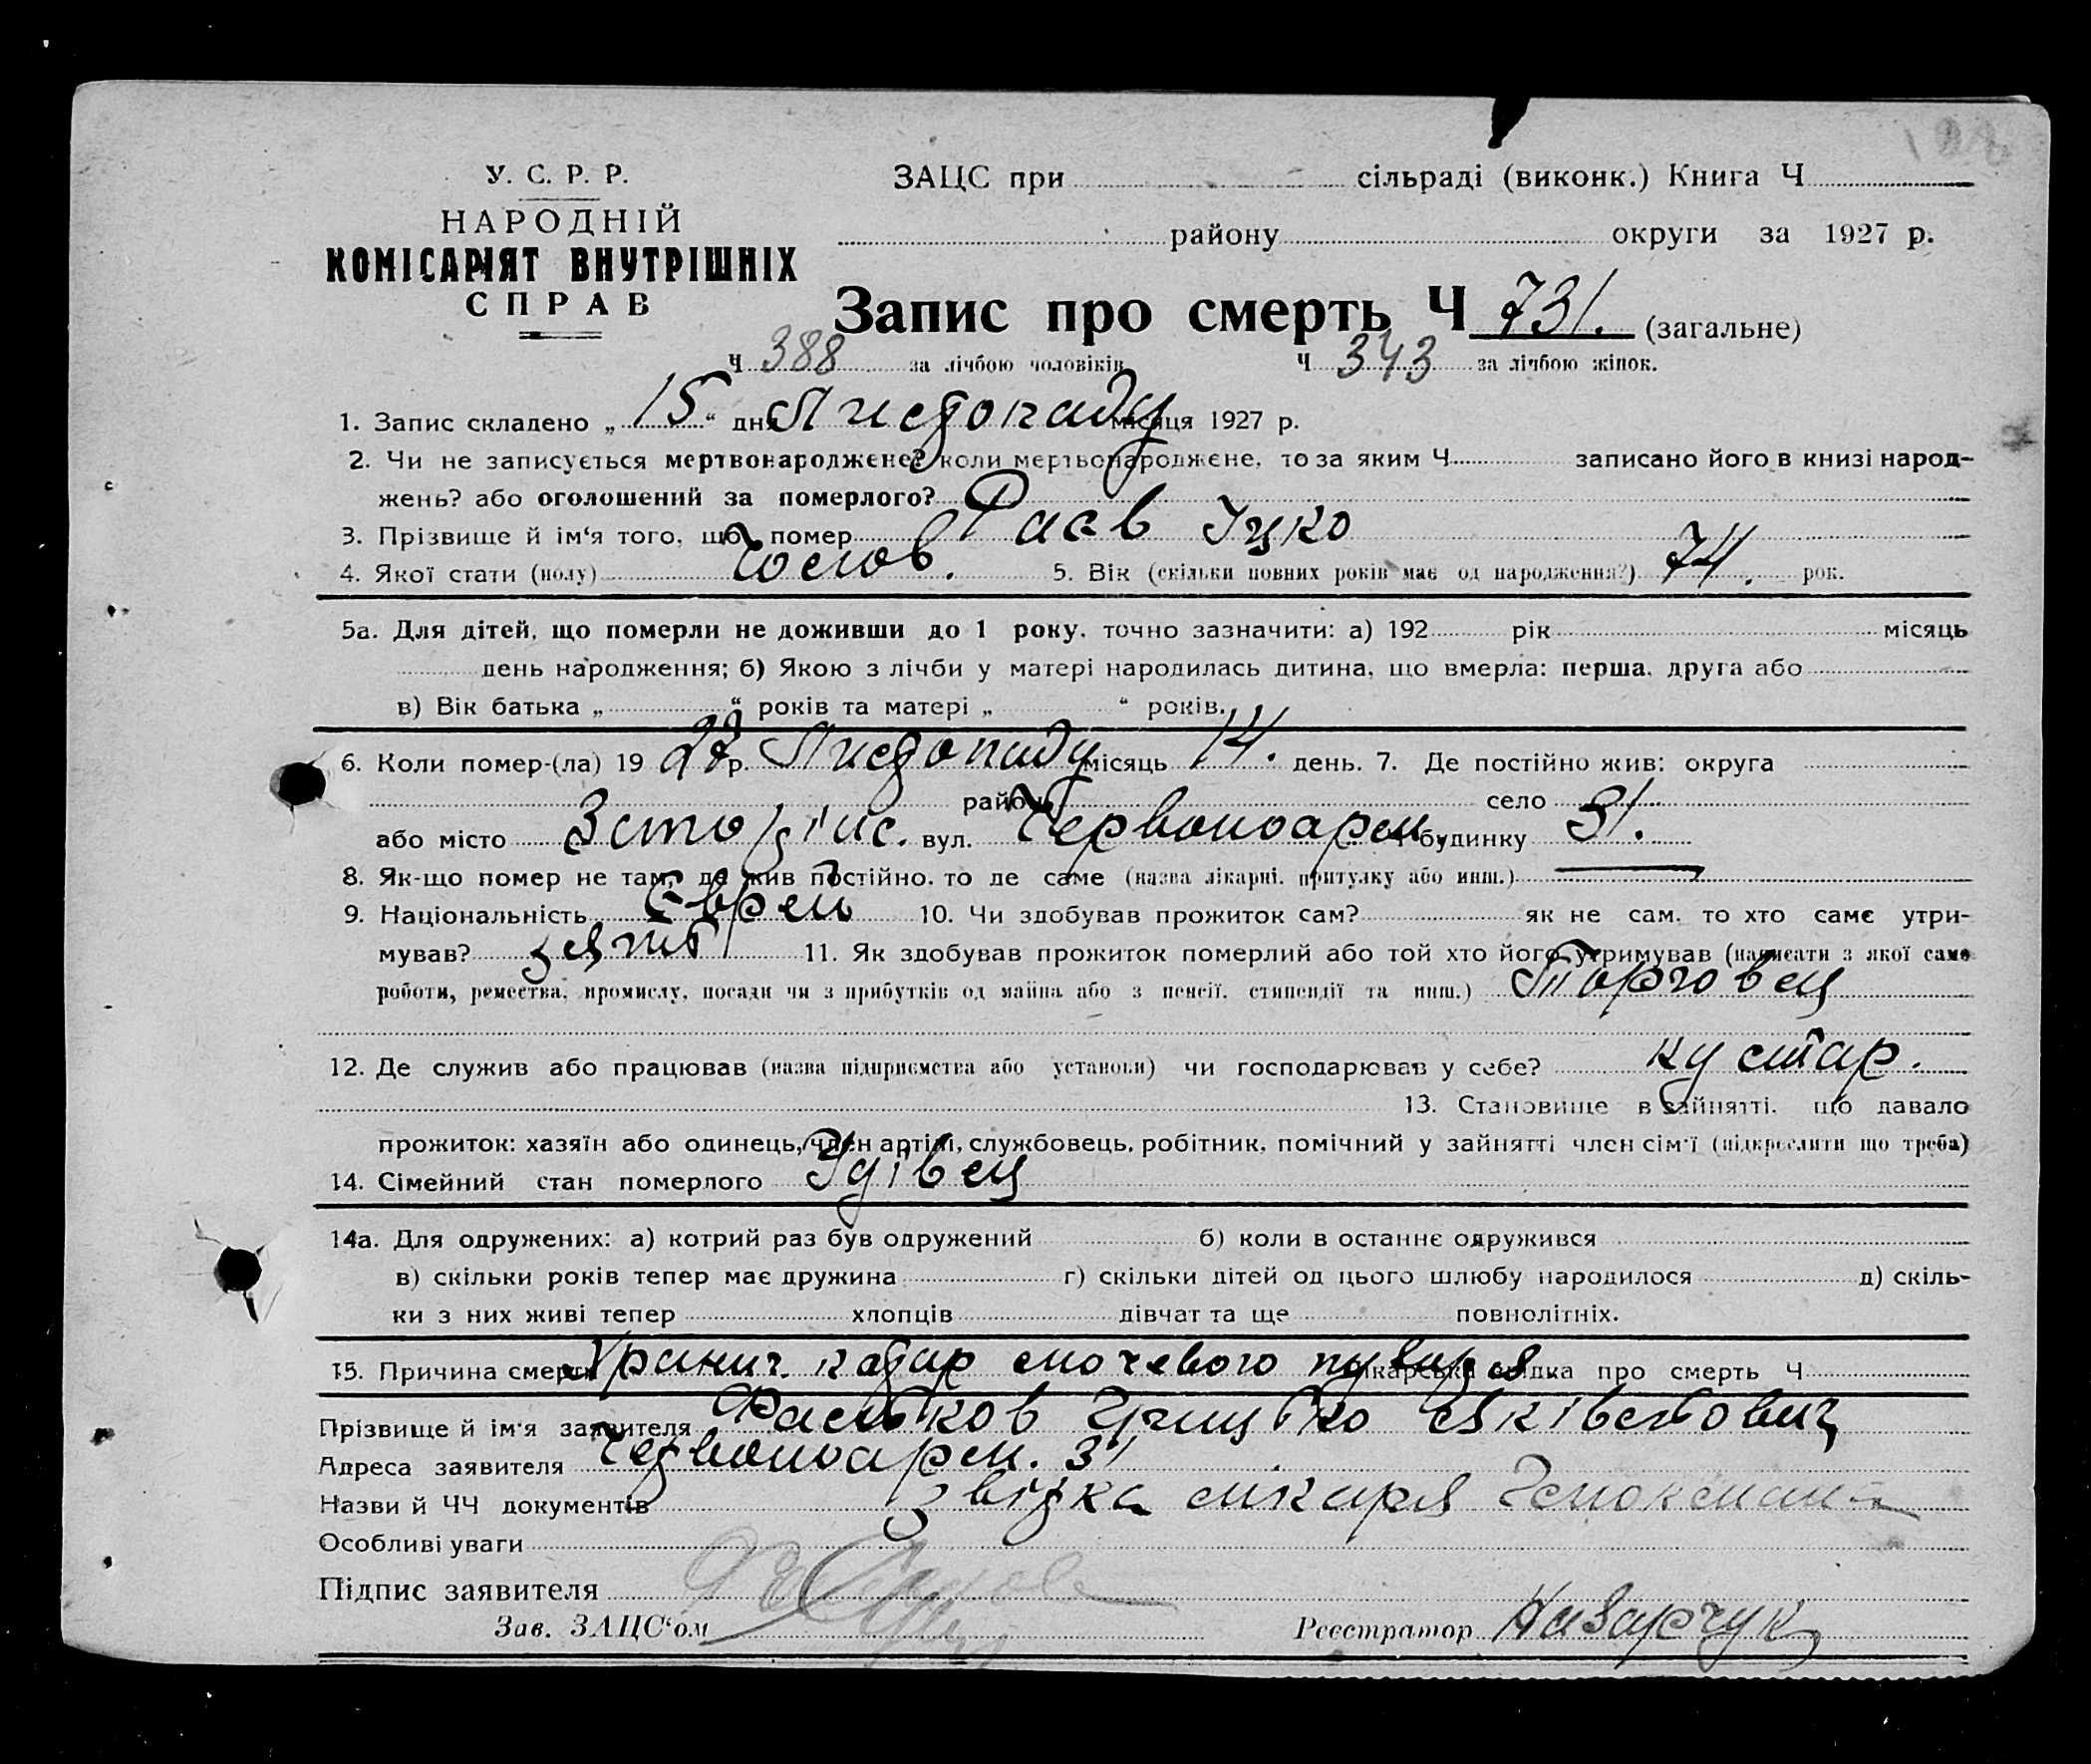 У. С. Р. Р.
НАРОДНІЙ
КОМІСАРІЯТ ВНУТРІШНІХ
СПРАВ
ЗАЦС при сільраді (виконк.) Книга Ч
району округи за 1927 р.
Запис про смерть Ч 731. (загальне)
Ч 388 за лічбою чоловіків Ч 343 за лічбою жінок.
1. Запис складено „ 15 “ дня Листопаду місяця 1927 р.
2. Чи не записується мертвонароджене? коли мертвонароджене, то за яким Ч записано його в книзі народ-
жень? або оголошений за померлого?
3. Прізвище й ім‘я того, що помер Іцко
4. Якої стати (полу) Чолов. 5. Вік (скільки повних років має од народження?) 74. рок.
5а. Для дітей, що померли не доживши до 1 року, точно зазначити: а) 192 рік місяць
день народження; б) Якою з лічби у матері народилась дитина, що вмерла: перша, друга або
в) Вік батька „ “ років та матері „ “ років.
6. Коли помер-(ла) 19 27 р. Листопаду місяць 14. день. 7. Де постійно жив: округа
району село
або місто вул. Червоноарм. Ч будинку 31.
8. Як-що помер не там, де жив постійно, то де саме (назва лікарні, притулку або инш.) —
9. Національність Єврей 10. Чи здобував прожиток сам? як не сам, то хто саме утри-
мував? зять 11. Як здобував прожиток померлий або той хто його утримував (написати з якої саме
роботи, ремества, промислу, посади чи з прибутків од майна або з пенсії, стипендії та инш.) Торговец
12. Де служив або працював (назва підприємства або установи) чи господарював у себе? кустар.
13. Становище в зайнятті, що давало
прожиток: хазяїн або одинець, член артілі, службовець, робітник, помічний у зайнятті член сім‘ї (підкреслити що треба)
14. Сімейний стан померлого Удівец
14а. Для одружених: а) котрий раз був одружений б) коли в останнє одружився
в) скільки років тепер має дружина г) скільки дітей од цього шлюбу народилося д) скіль-
ки з них живі тепер хлопців дівчат та ще повнолітніх.
15. Причина смерти Хранич. катар мочевого пузиря. Лікарська свідка про смерть Ч
Прізвище й ім‘я заявителя
Адреса заявителя Червоноарм. 31
Назви й ЧЧ документів Звідка лікаря
Особливі уваги
Підпис заявителя
Зав. ЗАЦС‘ом Реєстратор Назарчук